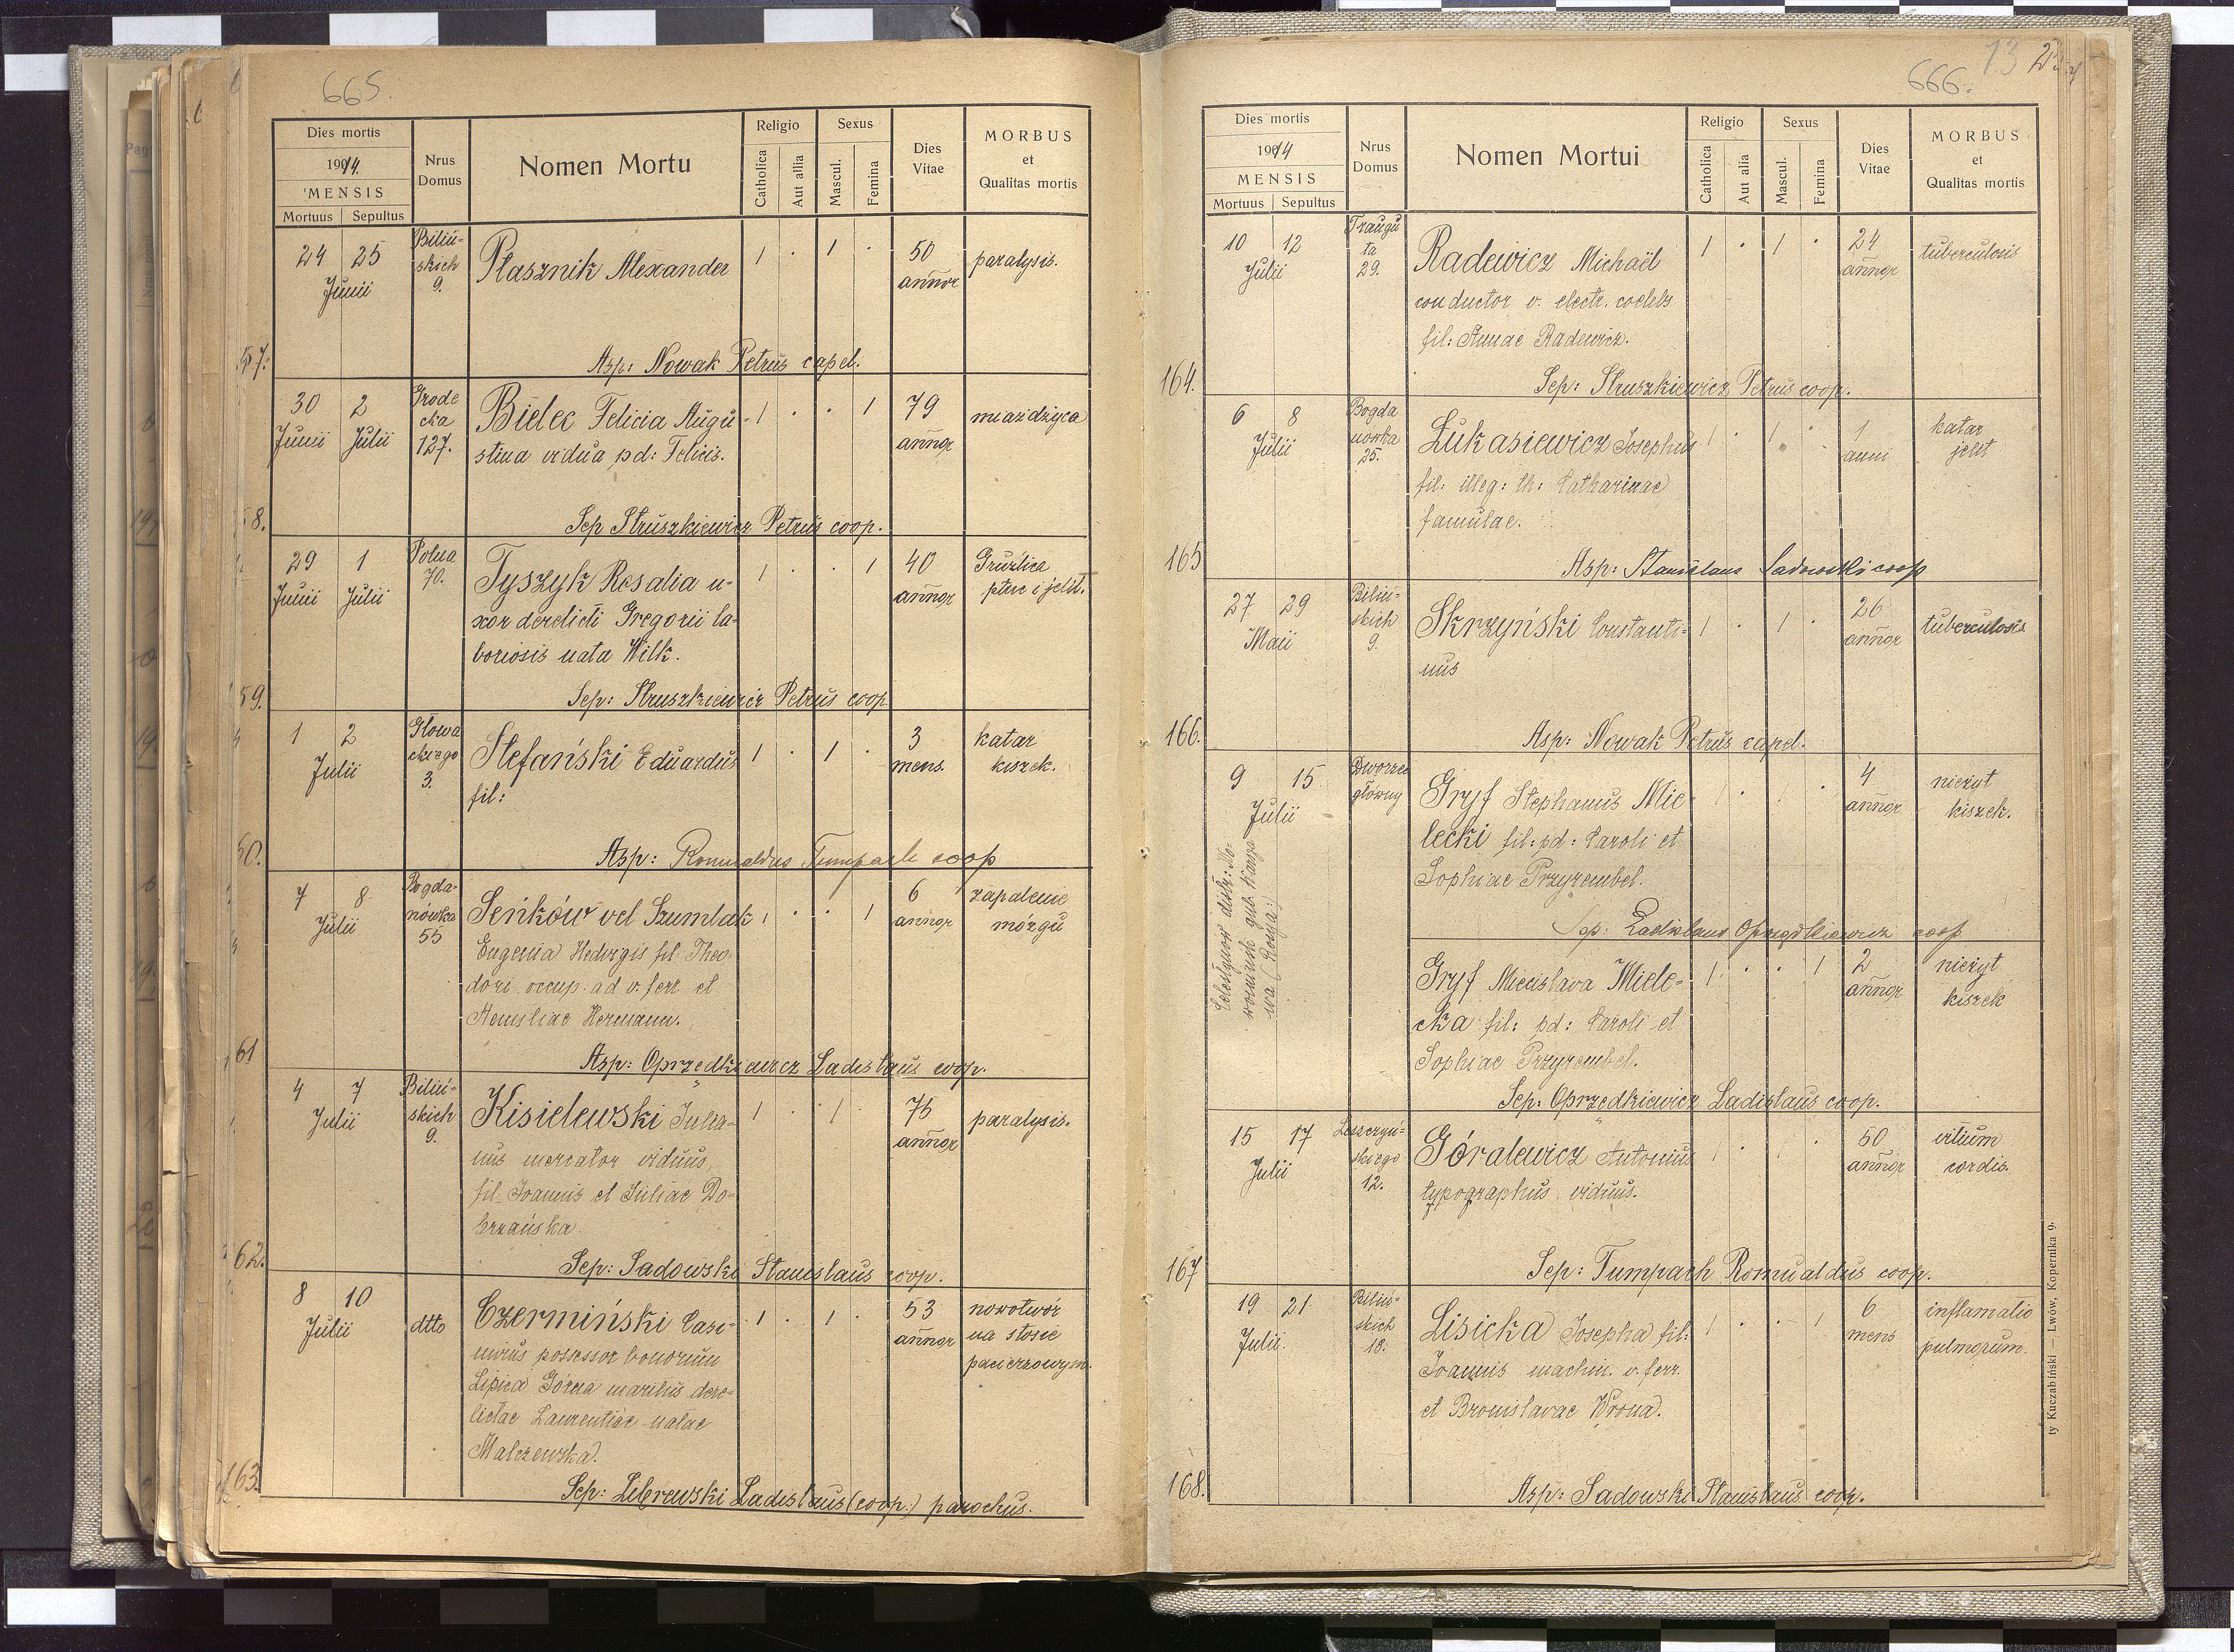 665.
Dies mortis
1914.
MENSIS
Mortuus Sepultus
Nrus Domus
Nomen Mortu
Religio
Catholica
Aut alia
Sexus
Mascul.
Femina
Dies Vitae
MORBUS
et
Qualitas mortis
24 25 Biliń- Ptasznik Alexander 1 . 1 . 50 paralysis.
Junii skich 9. annor
57. Asp: Nowak Petrus capel.
30 2 Grode Bielec Felicia Augu- 1 . . 1 79 miażdżyca
Junii Julii cka 127. stina vidua pd: Felicis. annor
58. Sep Struszkiewicz Petrus coop.
29 1 Polna 70. Tyszyk Rosalia u- 1 . . 1 40 Gruźlica
Junii Julii xor derelicti Gregorii la- annor płuc i jelit.
boriosis nata Wilk.
59. Sep: Struszkiewicz Petrus coop.
1 2 Głowa Stefański Eduardus 1 . 1 . 3 katar
Julii ckiego 3. fil: mens. kiszek.
60. Asp: Romualdus Tumpach coop
7 8 Bogda- Seńków vel Szumlak 1 . . 1 6 zapalenie
Julii nówka 55 Eugenia Hedvigis fil. Theo- annor mózgu
dori occup. ad v. ferr. et
Aemiliae Hermann.
61 Asp: Oprzędkiewicz Ladislaus coop.
4 7 Biliń- Kisielewski Julia- 1 . 1 . 75 paralysis.
Julii skich 9. nus mercator viduus, annor
fil. Joannis et Juliae Do-
brzańska.
62. Sep: Sadowski Stanislaus coop.
8 10 dtto Czermiński Casi- 1 . 1 . 53 nowotwór
Julii mirus possessor bonorum annor na stosie
Lipica Górna maritus dere- pacierzowym.
lictae Laurentiae natae
Malczewska.
163. Sep: Librewski Ladislaus (coop.) parochus.
666. 13
Dies mortis
1914
MENSIS
Mortuus Sepultus
Nrus Domus
Nomen Mortui
Religio
Catholica
Aut alia
Sexus
Mascul.
Femina
Dies Vitae
MORBUS
et
Qualitas mortis
10 12 Traugu Radewicz Michaël 1 . 1 . 24 tuberculosis
Julii ta 29. conductor v. electr. coelebs annor
fil: Annae Radewicz.
164. Sep: Struszkiewicz Petrus coop.
6 8 Bogda Łukasiewicz Josephus 1 . 1 . 1 katar
Julii nówka 25. fil: illeg: th: Catharinae anni jelit
famulae.
165 Asp: Stanislaus Sadowski coop
27 29 Biliń- Skrzyński Constanti- 1 . 1 . 26 tuberculosis
Maii skich 9. nus annor
166. Asp: Nowak Petrus capel.
9 15 Dworzec Gryf Stephanus Mie 1 . 1 . 4 nieżyt
Julii główny lecki fil: pd: Caroli et annor kiszek.
Sophiae Przyrembel.
Sep: Ladislaus Oprzędkiewicz coop
Gryf Mieuslava Miele- 1 . . 1 2 nieżyt
cka fil: pd: Caroli et annor kiszek
Sophiae Przyrembel.
Sep: Oprzędkiewicz Ladislaus coop.
15 17 Leszczyń- Góralewicz Antonius 1 . 1 . 50 vitium
Julii skiego 12. typographus viduus. annor cordis.
167 Sep: Tumpach Romualdus coop.
19 21 Biliń- Lisicka Josepha fil: 1 . . 1 6 inflamatio
Julii. skich 18. Joannis machin. v. ferr. mens pulmorum.
et Bronislavae Wrona.
168. Asp: Sadowski Stanislaus coop.
ty Kuczabiński — Lwów, Kopernika 9.